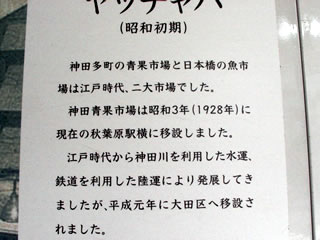 ヤッチャバ
(昭和初期)
神田多町の青果市場と日本橋の魚市
場は江戸時代、二大市場でした。
神田青果市場は昭和3年(1928年)に
現在の秋葉原駅横に移設しました。
江戸時代から神田川を利用した水運、
鉄道を利用した陸運により発展してき
ましたが、平成元年に大田区へ移設さ
れました。